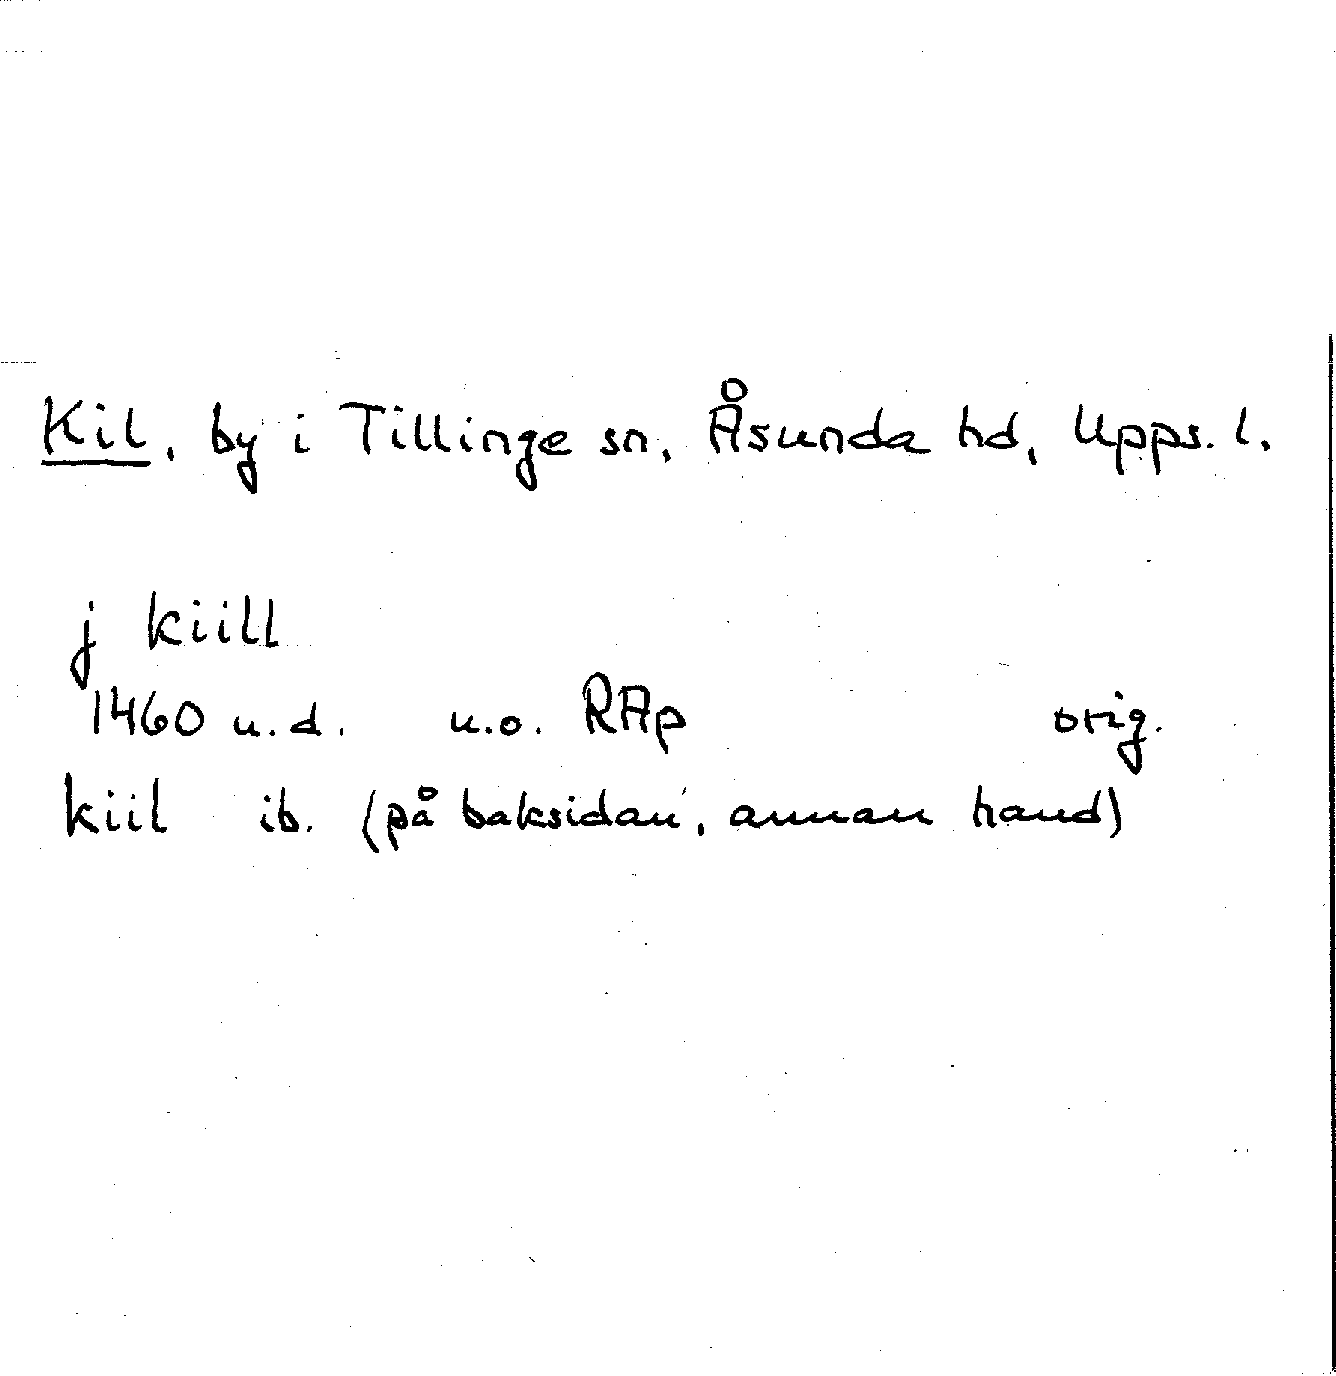 Kil, by i Tillinge sn, Åsunda hd, Upps. l.
j kiill
1460 u.d. u.o. RAp orig.
kiil ib. (på baksidan, annan hand)